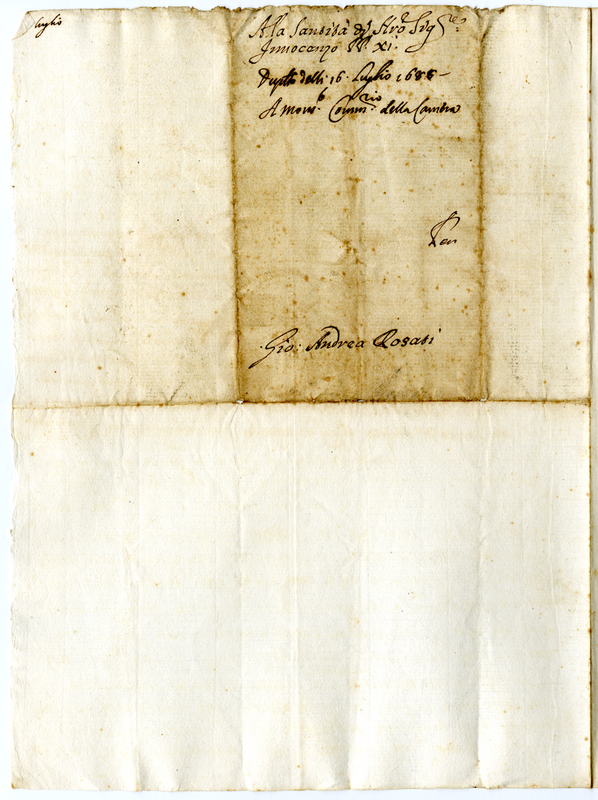 luglio
A la Santità di Nro Sig.re
Innocenzo PP. XI.
Duplto delli 16 Luglio 1686
A Mons.r Comm.rio della Camera
Per
Gio: Andrea Rosati